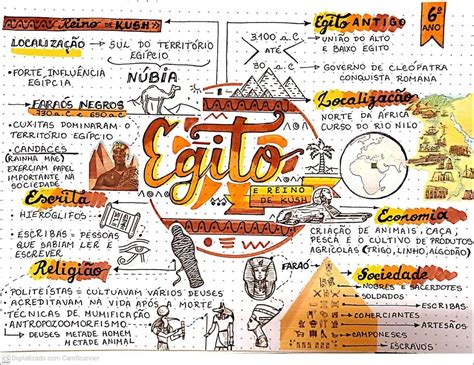 Reino de KUSH
LOCALIZAÇÃO
SUL DO TERRITÓRIO
EGÍPCIO
• FORTE INFLUÊNCIA
EGÍPCIA
NÚBIA
FARAÓS NEGROS
730 a.C. e 650 a.C
• CUXITAS DOMINARAM O
TERRITÓRIO EGÍPCIO
• CANDACES
(RAINHA MÃE)
EXERCIAM PAPEL
IMPORTANTE NA
SOCIEDADE
Escrita
HIERÓGLIFOS
ESCRIBAS = PESSOAS
QUE SABIAM LER E
ESCREVER
Religião
• POLITEÍSTAS = CULTUAVAM VÁRIOS DEUSES
• ACREDITAVAM NA VIDA APÓS A MORTE
• TÉCNICAS DE MUMIFICAÇÃO
• ANTROPOZOOMORFISMO
DEUSES METADE HOMEM
METADE ANIMAL
Egito
E REINO
DE KUSH
Egito ANTIGO
6º
ANO
3.100 a.C
ATÉ
30 a.C
UNIÃO DO ALTO
E BAIXO EGITO
GOVERNO DE CLEÓPATRA
CONQUISTA ROMANA
Localização
NORTE DA ÁFRICA
CURSO DO RIO NILO
Economia
CRIAÇÃO DE ANIMAIS, CAÇA,
PESCA E O CULTIVO DE PRODUTOS
AGRÍCOLAS (TRIGO, LINHO, ALGODÃO)
FARAÓ
Sociedade
NOBRES E SACERDOTES
SOLDADOS
ESCRIBAS
COMERCIANTES
ARTESÃOS
CAMPONESES
ESCRAVOS
CS Digitalizado com CamScanner